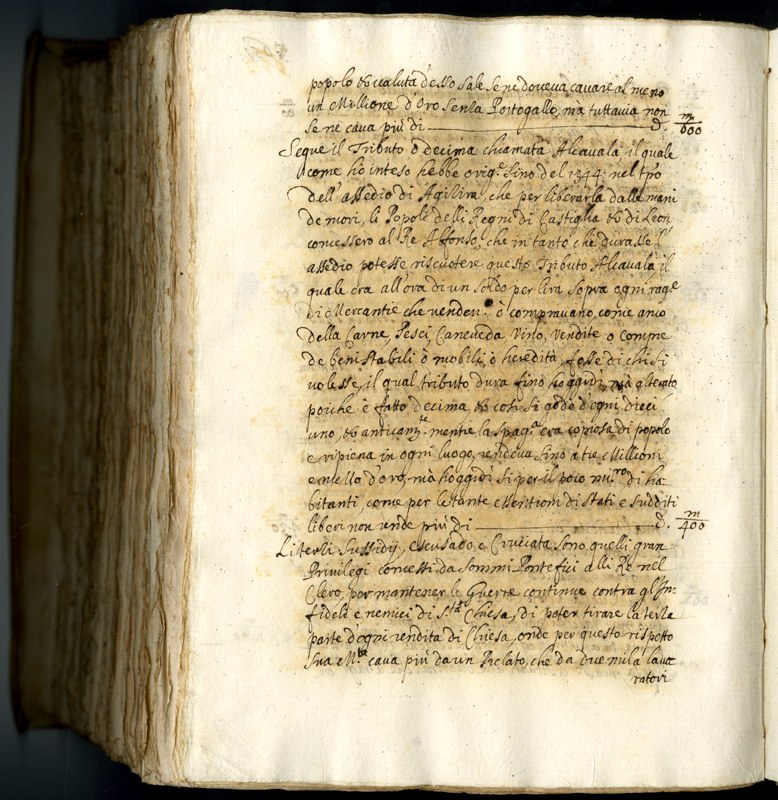 popolo et valuta d'esso sale se ne doveva cavare al meno
un Millione d'oro senza Portogallo, mà tuttavia non
se ne cava più di d. m/600
Segue il Tributo ò decima chiamata Alcavala il quale
come hò inteso hebbe orig.e sino del 1344 nel tpo
dell'assedio di Agilira, che per liberarla dalle mani
de mori, li Popoli delli Regni di Castiglia et di Leon
concessero al Re Alfonso, che in tanto che durasse l'
assedio potesse riscuotere questo Tributo Alcavala il
quale era all'ora di un soldo per lira sopra ogni rag.e
di Mercantie che venden. ò compravano, come anco
della Carne, Pesci, Caneveda vino, vendite o compre
de beni stabili ò mobili, ò heredità, fosse di chi si
volesse, il qual tributo dura fino hoggidì, mà alterato
poiche è fatto decima, et così si gode d'ogni dieci
uno, et anticam.te mentre la spag.a era copiosa di popolo
e ripiena in ogni luogo, rendeva sino à tre Millioni
e mezzo d'oro, mà hoggidì si per il poco nu.ro di ha
bitanti, come per le tante essentioni di stati e sudditi
liberi non rende più di d. m/400
Li trè li sussidij, escusado, e Cruciata sono quelli gran
Privilegi concessi da sommi Pontefici alli Re nel
Clero, per mantener le Guerre continue contra gl'In-
fideli e nemici di s.ta Chiesa, di poter tirare la terza
parte d'ogni rendita di Chiesa, onde per questo rispetto
sua M.tà cava più da un Prelato, che da due mila lavo
ratori